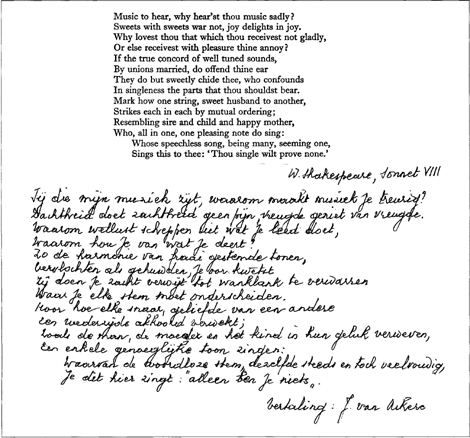 Music to hear, why hear'st thou music sadly?
Sweets with sweets war not, joy delights in joy.
Why lovest thou that which thou receivest not gladly,
Or else receivest with pleasure thine annoy?
If the true concord of well tuned sounds,
By unions married, do offend thine ear
They do but sweetly chide thee, who confounds
In singleness the parts that thou shouldst bear.
Mark how one string, sweet husband to another,
Strikes each in each by mutual ordering;
Resembling sire and child and happy mother,
Who, all in one, one pleasing note do sing:
Whose speechless song, being many, seeming one,
Sings this to thee: 'Thou single wilt prove none.'
W. Shakespeare, Sonnet VIII
Jij die mijn muziek zijt, waarom maakt muziek je treurig?
Zachtheid doet zachtheid geen pijn vreugde geniet van vreugde.
Waarom wellust scheppen uit wat je leed doet,
Waarom hou je van wat je deert?
Zo de harmonie van fraai gestemde tonen,
vervlochten als gehuwden, je oor kwetst
Zij doen je zacht verwijt tot wanklank te verwarren
Waar je elke stem moet onderscheiden.
Hoor hoe elke snaar, geliefde van een andere
Een wederzijds akkoord verwekt;
Zoals de man, de moeder en het kind in hun geluk verweven,
Een enkele genoeglijke toon zingen:
Waarvan de woordloze stem, dezelfde steeds en toch veelvoudig,
Je dit hier zingt: "alleen ben je niets".
Vertaling: J. van